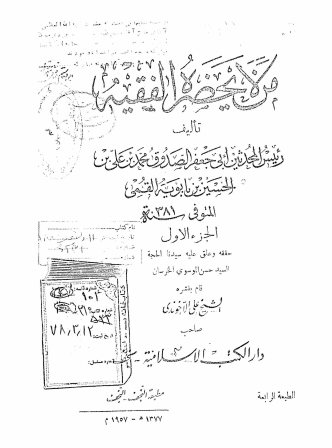 من لا يحضره الفقيه
تأليف
رئيس المحدثين أبي جعفر الصدوق محمد بن علي بن
الحسين بن بابويه القمي
المتوفى سنة ٣٨١ هـ
الجزء الاول
حققه وعلق عليه سيدنا الحجة
السيد حسن الموسوي الخرسان
قام بنشره
الشيخ علي الآخوندي
صاحب
دار الكتب الاسلامية
٧٨/٣/١٢
الطبعة الرابعة
مطبعة النجف - النجف
١٣٧٧ هـ - ١٩٥٧ م